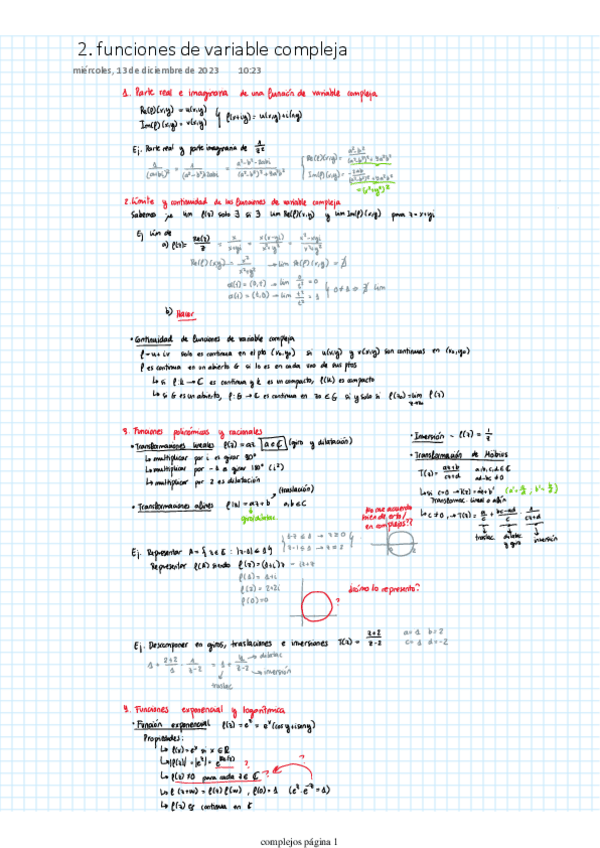 2. funciones de variable compleja
miércoles, 13 de diciembre de 2023 10:23
1. Parte real e imaginaria de una función de variable compleja
Re(f)(x,y) = u(x,y)
Im(f)(x,y) = v(x,y)
f(x+iy) = u(x,y)+i v(x,y)
Ej. Parte real y parte imaginaria de 1/z²
2. Límite y continuidad de las funciones de variable compleja
Sabemos ya lim f(z) solo ∃ si ∃ lim Re(f)(x,y) y lim Im(f)(x,y) para z = x+yi
Ej lim de
a) f(z) = Re(z)/z = x/(x+yi) = x(x-yi)/(x²+y²) = (x²-xyi)/(x²+y²)
Re(f)(x,y) = x²/(x²+y²) → lim Re(f)(x,y) = ∄
b) Hacer
• Continuidad de funciones de variable compleja
f = u+iv solo es continua en el pto (x₀,y₀) si u(x,y) y v(x,y) son continuas en (x₀,y₀)
f es continua en un abierto G si lo es en cada uno de sus ptos
↳ si f: K → ℂ es continua y K es un compacto, f(K) es compacto
↳ si G es un abierto, f: G → ℂ es continua en z₀ ∈ G si y solo si f(z₀) = lim f(z)
3. Funciones polinómicas y racionales
• Transformaciones lineales f(z) = az a ∈ ℂ (giro y dilatación)
↳ multiplicar por i es girar 90°
↳ multiplicar por -1 es girar 180° (i²)
↳ multiplicar por 2 es dilatación
• Transformaciones afines f(z) = az+b a,b ∈ ℂ
(traslación)
giro/dilatac
• Inversión ~ f(z) = 1/z
• Transformación de Möbius
T(z) = (az+b)/(cz+d) a,b,c,d ∈ ℂ
ad-bc ≠ 0
↳ si c=0 → T(z) = a'z+b' (a' = a/d, b' = b/d)
Transformac. lineal o afín
↳ c ≠ 0, → T(z) = a/c + (bc-ad)/c · 1/(cz+d)
traslac dilatac y giro inversión
No me acuerdo
en complejos??
Ej. Representar A = {z ∈ ℂ : |z-1| ≤ 1}
Representar f(A) siendo f(z) = (1+i)z
f(1) = 1+i
f(2) = 2+2i
f(0) = 0
?
¿cómo lo represento?
Ej. Descomponer en giros, traslaciones e inversiones T(z) = (z+2)/(z-2) a=1 b=2
c=1 d=-2
1 + (2+2)/1 · 1/(z-2) = 1 + 4/(z-2)
dilatac
inversión
traslac
4. Funciones exponencial y logarítmica
• Función exponencial f(z) = e^z = e^x (cos y + i sen y)
Propiedades:
↳ f(x) = e^x si x ∈ ℝ
↳ |f(z)| = |e^z| = e^Re(z) ?
↳ f(z) ≠ 0 para cada z ∈ ℂ ? ?
↳ f(z+w) = f(z) f(w), f(0) = 1 (e^z · e^-z = 1)
↳ f(z) es continua en ℂ
complejos página 1